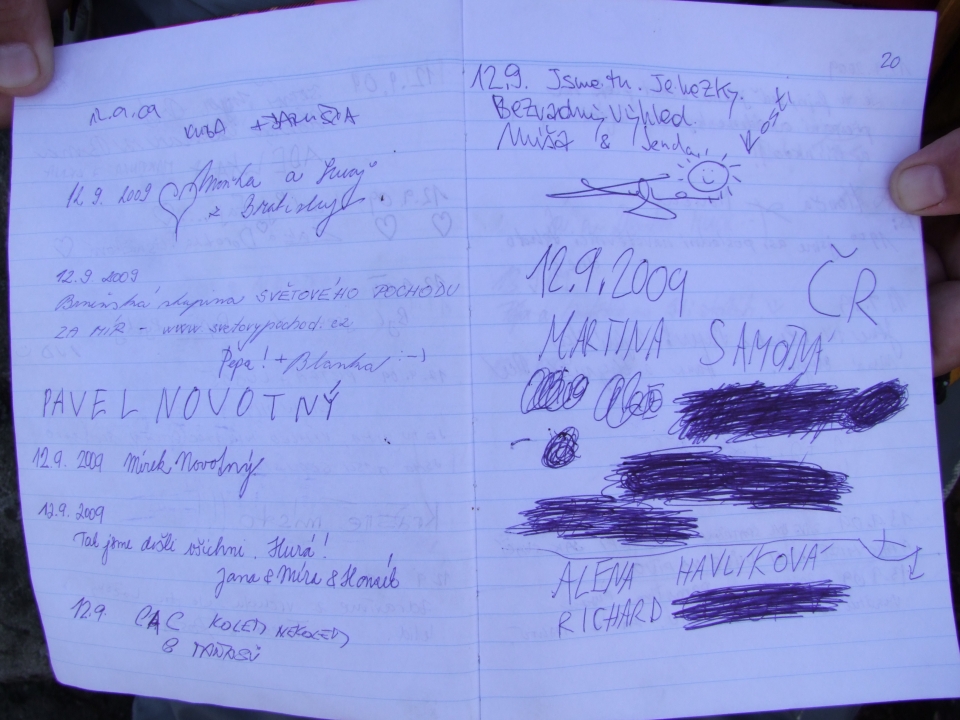 12.9.09
KUBA + JARUŠKA
12.9. 2009 Monika a
z Bratislavy
12.9 2009
Brněnská skupina SVĚTOVÉHO POCHODU
ZA MÍR - www.svetovypochod.cz
Pepa! + Blanka :-)
PAVEL NOVOTNÝ
12.9. 2009 Mirek Novotný
12.9. 2009
Tak jsme došli všichni. Hurá!
Jana & Míra & Honzík
12.9
20
12.9. Jsme tu. Je hezky.
Bezvadný výhled.
Míša & Jenda
12.9.2009 ČR
MARTINA SAMOTNÁ
ALENA HAVLÍKOVÁ
RICHARD